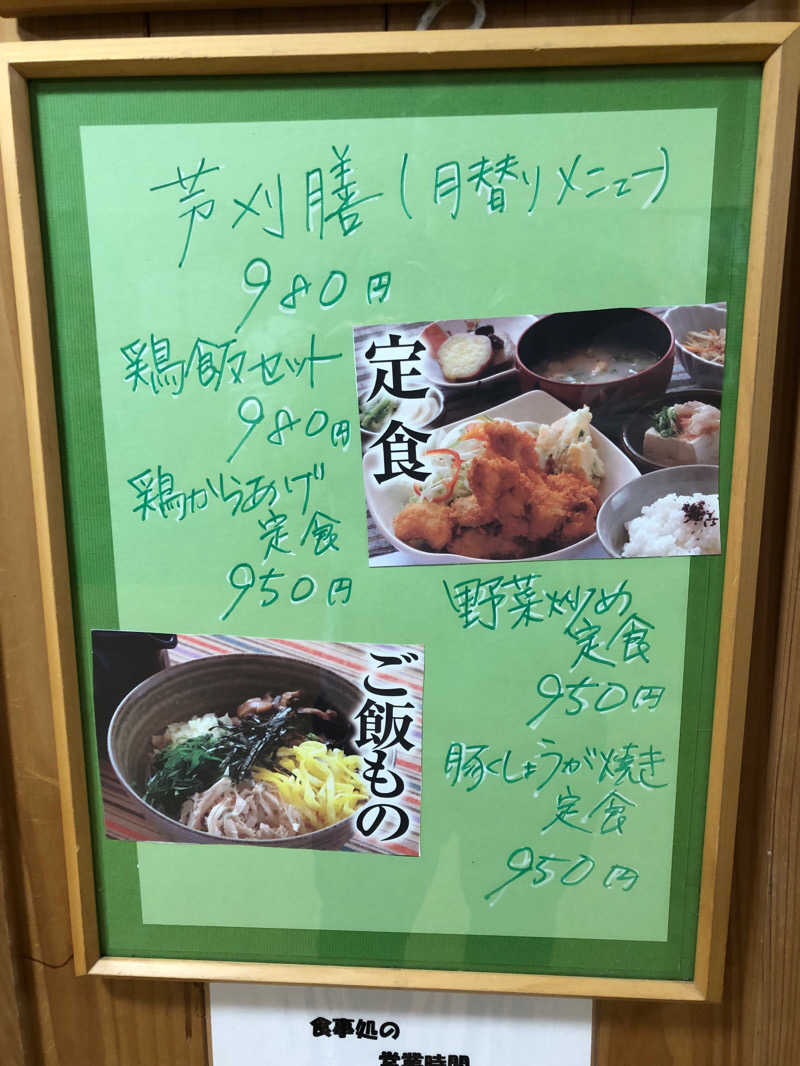 芦刈膳(月替りメニュー)
980円
鶏飯セット
980円
鶏からあげ
定食
950円
定食
野菜炒め
定食
950円
ご飯もの
豚しょうが焼き
定食
950円
食事処の
営業時間